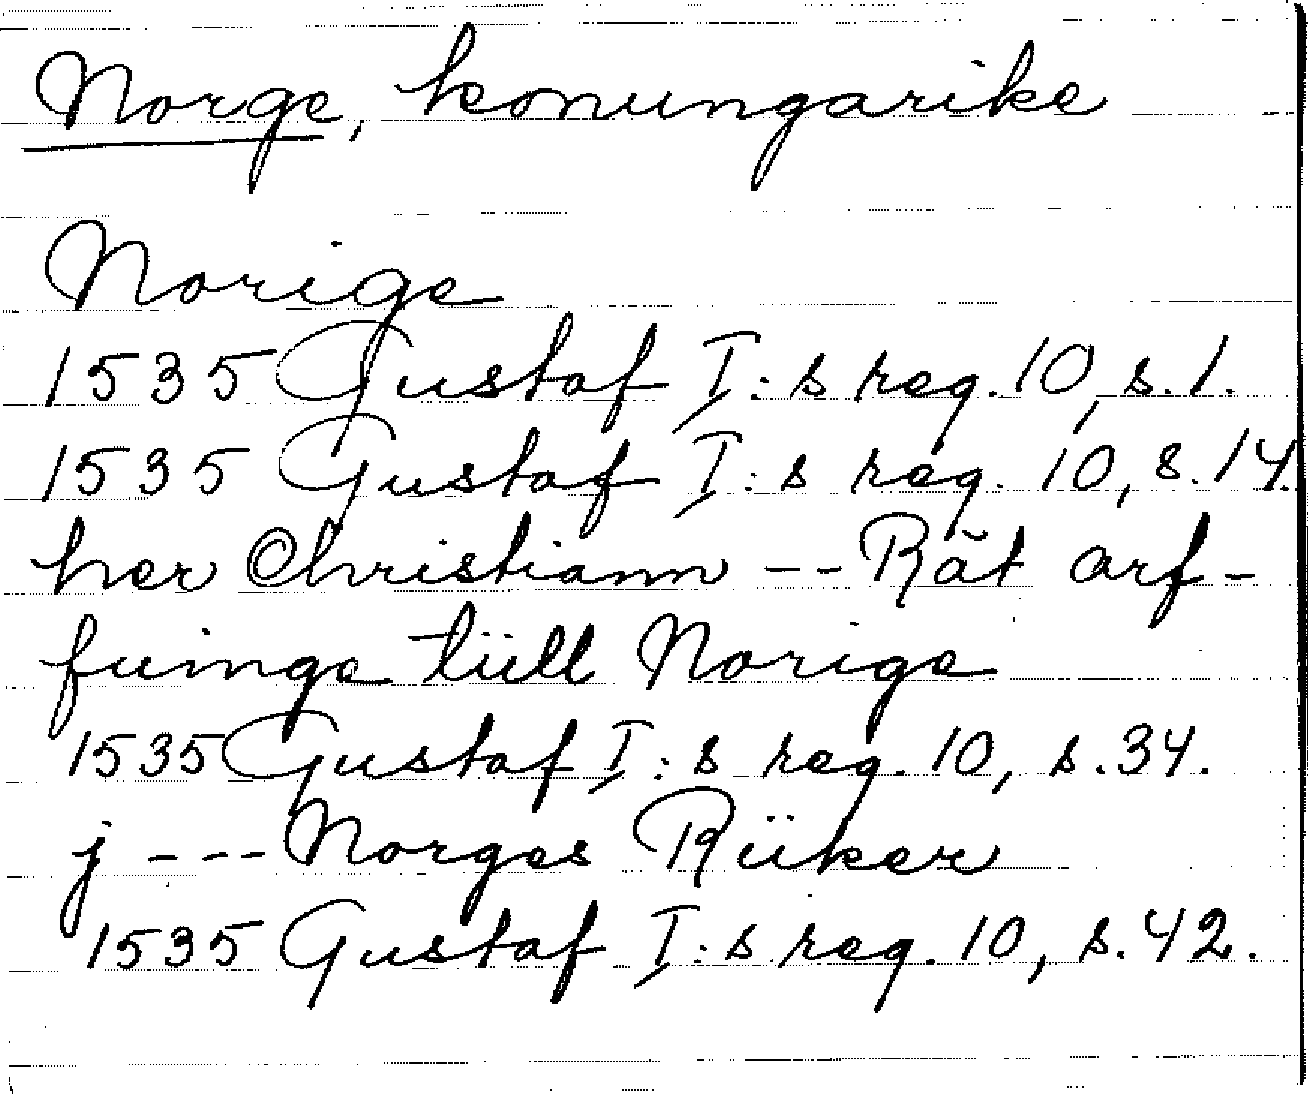 Norge, konungarike
Norige
1535 Gustaf I:s reg. 10, s. 1.
1535 Gustaf I:s reg. 10, s. 14.
her Christiann -- Rät arf-
fuinge tüll Norige
1535 Gustaf I:s reg. 10, s. 34.
j --- Norges Rüker
1535 Gustaf I:s reg. 10, s. 42.